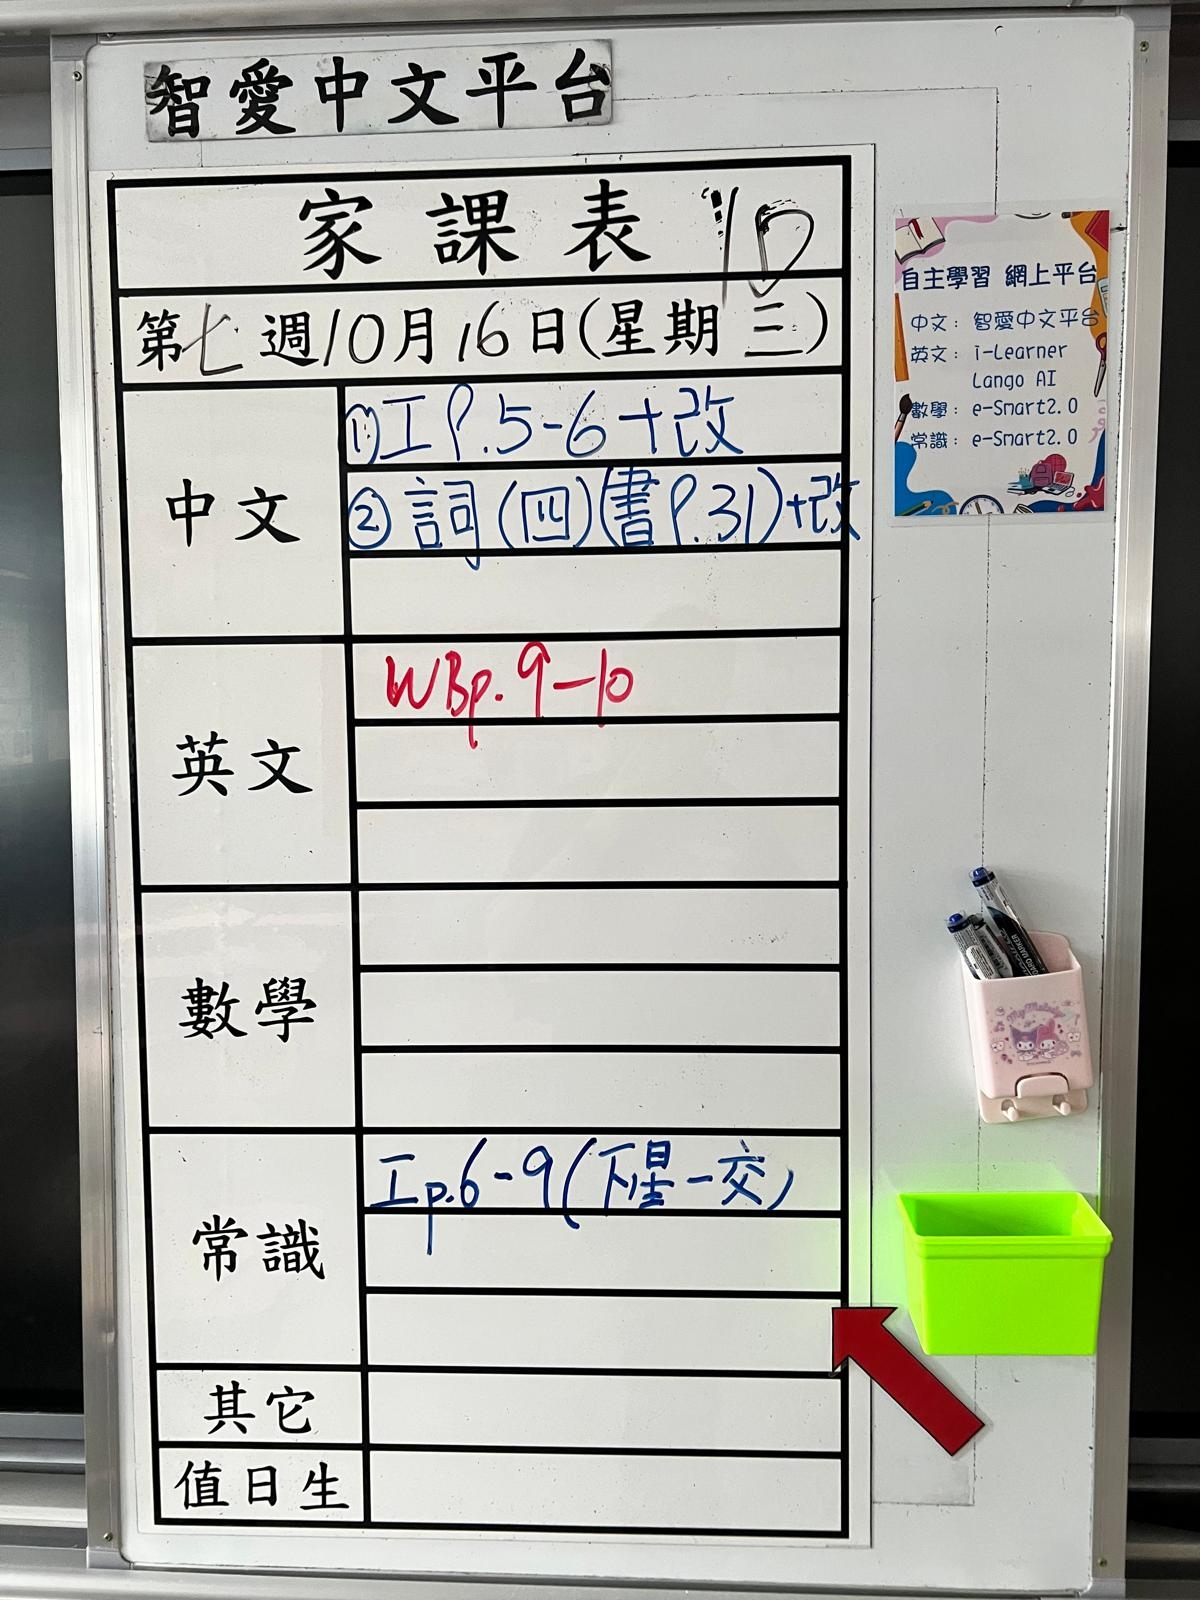 智愛中文平台
家課表 10
第七週10月16日(星期三)
中文
①工P.5-6+改
②詞(四)(書P.31)+改
英文
WBp.9-10
數學
常識
工p.6-9(下星一交)
其它
值日生
自主學習 網上平台
中文：智愛中文平台
英文：i-Learner
Lango AI
數學：e-Smart2.0
常識：e-Smart2.0
My Melody